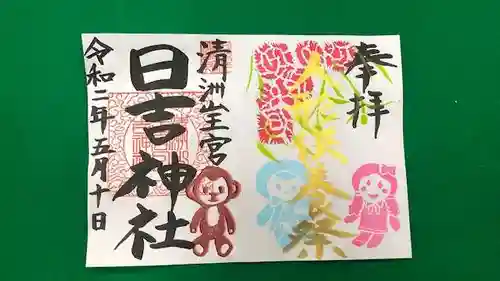 奉拝
人形供養祭
清洲山王宮
日吉神社
令和二年五月十日